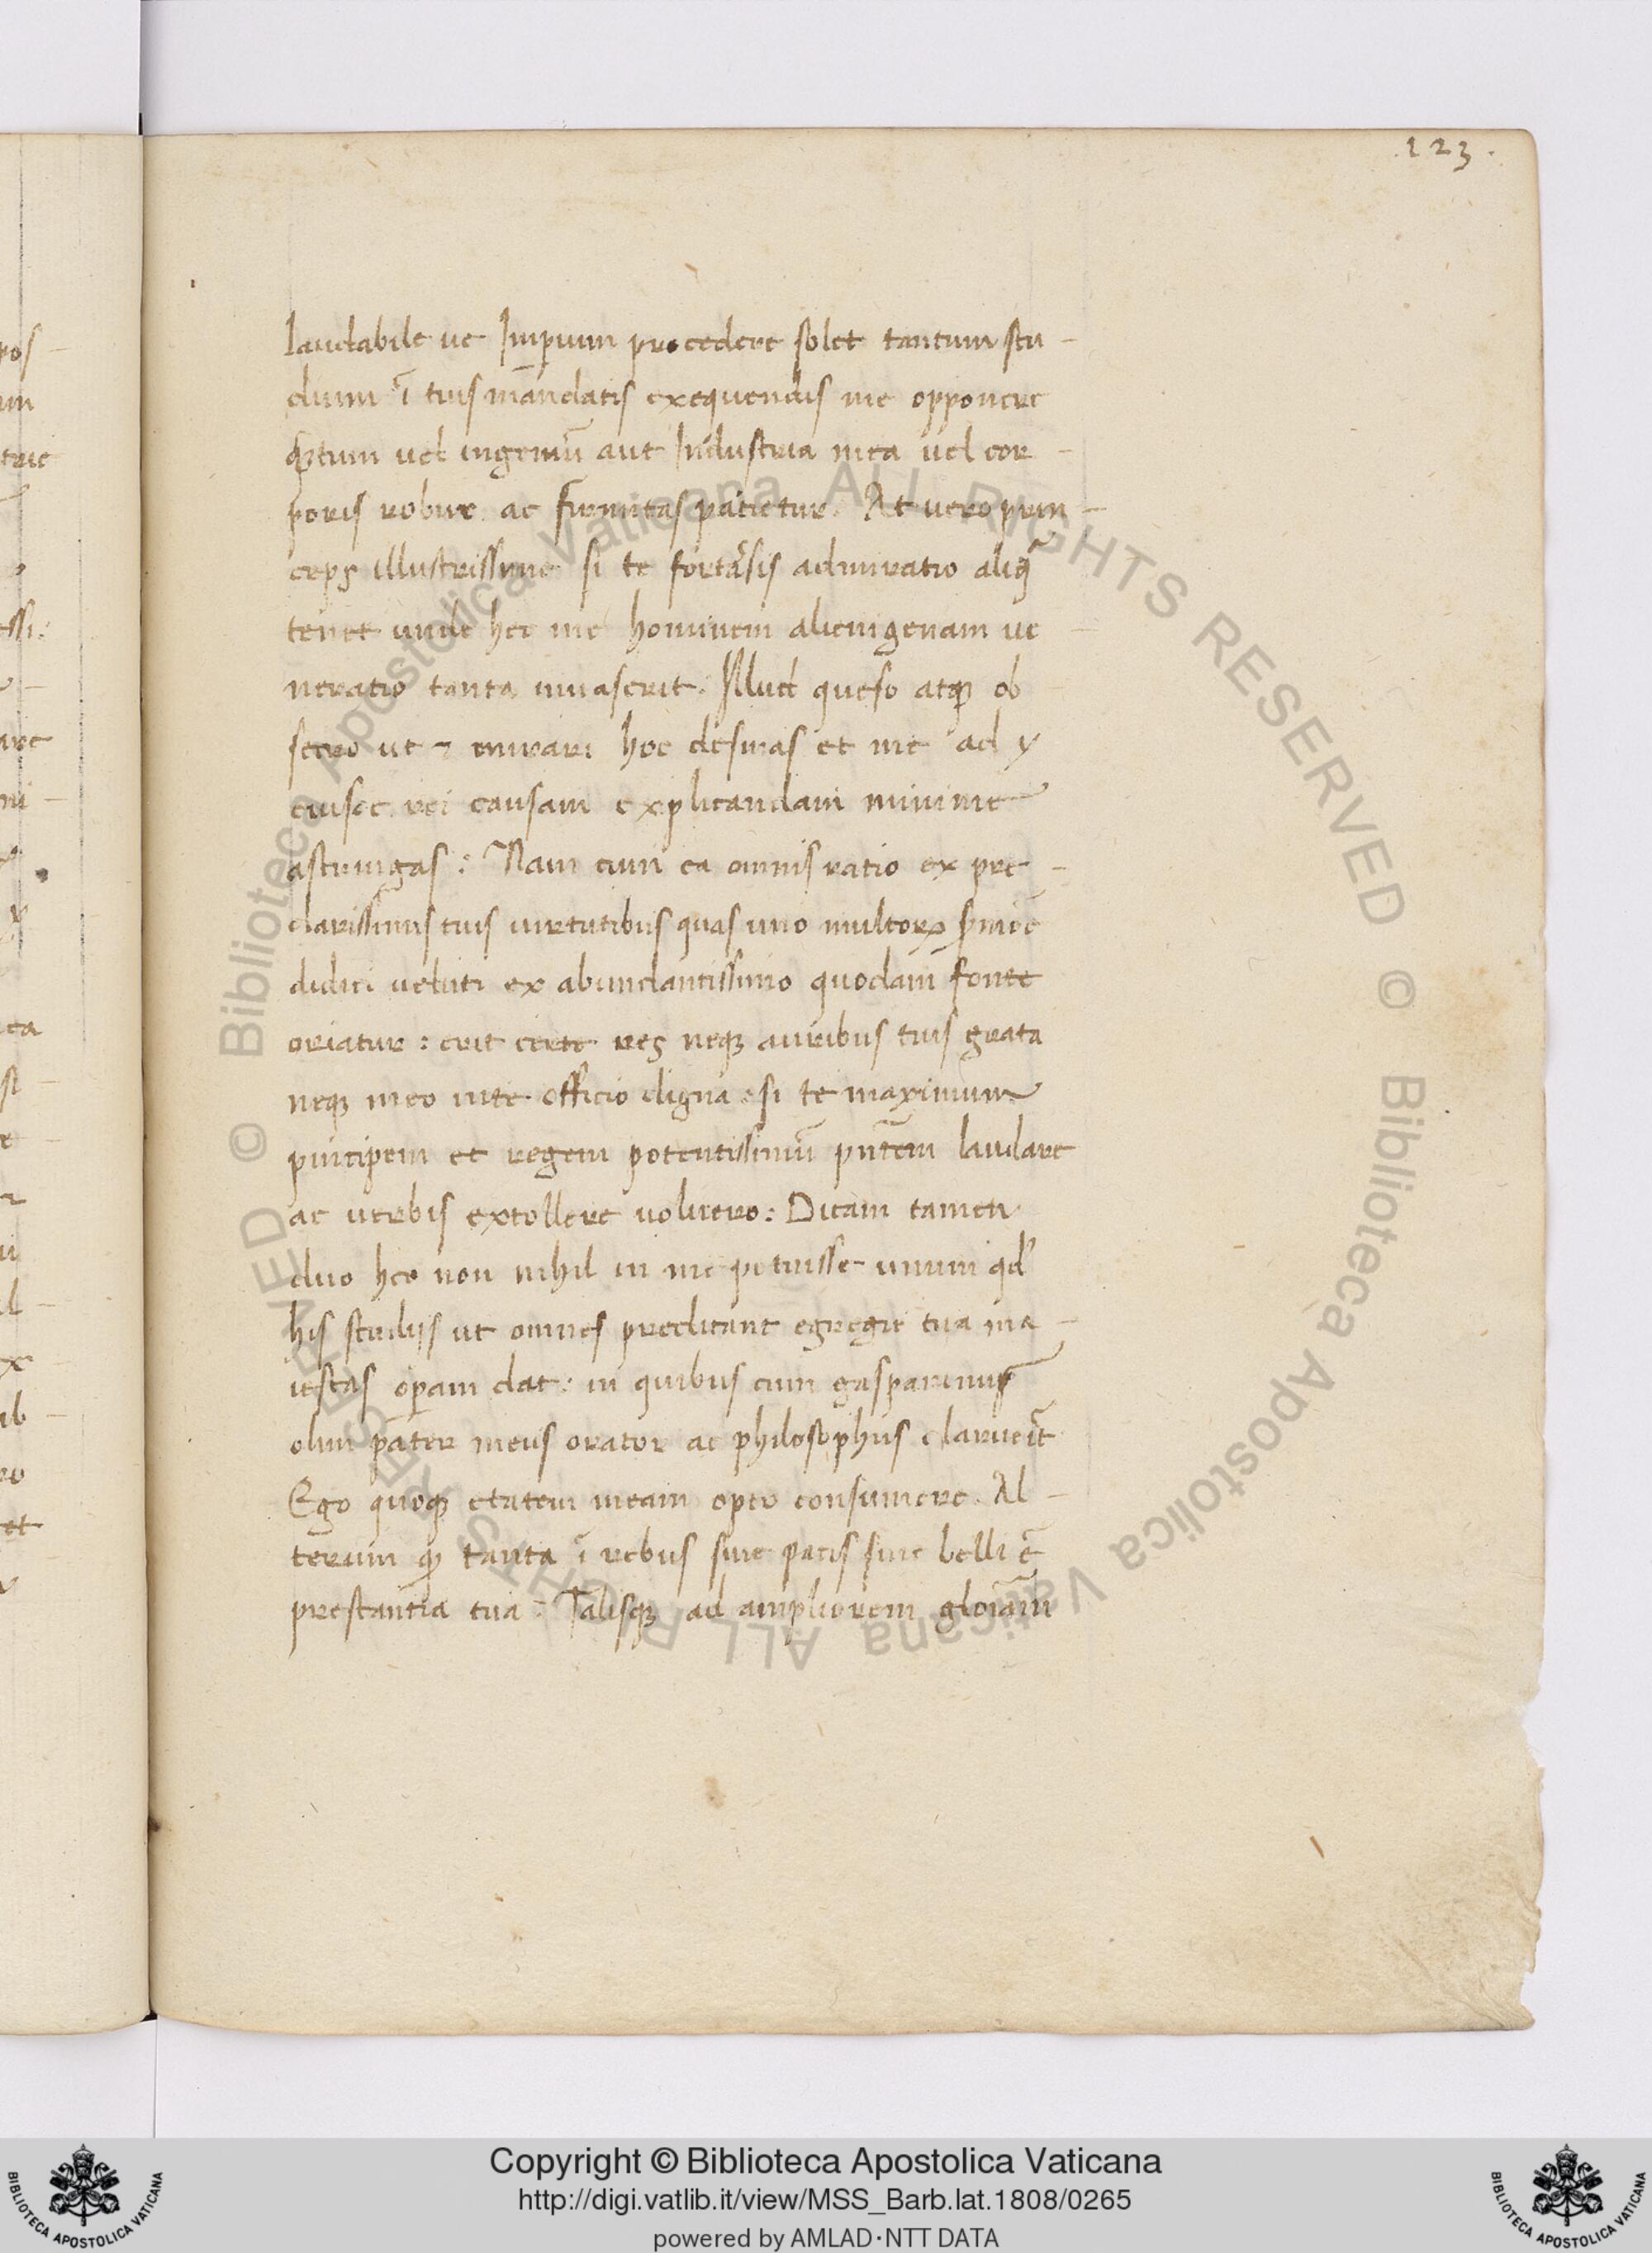 .123.
laudabile ue Imp̄ium procedere solet tantum stu-
dium ī tuis mandatis exequendis me opponere
q̄ntum uel ingeniū aut Industria mea uel cor-
poris robur ac firmitas patietur. At uero prin-
ceps illustrissime si te fortasis admiratio aliq̄
tenet unde hec me hominem alienigenam ue-
neratio tanta inuaserit. Illud queso atq̨ ob
secro ut et mirari hoc desinas et me ad
eiusce rei causam explicandam minime
astringas: Nam cum ea omnis ratio ex pre-
clarissimis tuis uirtutibus quas uno multorꝝ
didici ueluti ex abundantissimo quodam fonte
oriatur: erit certe res neq̨ auribus tuis grata
neq̨ meo uite officio digna si te maximum
principem et regem potentissimū pn̄tem laudare
ac uerbis extollere uoluero: Dicam tamen
duo hec non nihil in me potuisse unum qd̓
his studiis ut omnes predicant egregie tua ma-
iestas op̄am dat: in quibus cum gasparinus
olim pater meus orator ac philosophus claruerit
Ego quoq̨ etatem meam opto consumere. Al-
terum q̨ tanta ī rebus siue pacis siue belli ē
prestantia tua: Talisq̨ ad ampliorem gloīam
pos-
um
tric
ssi:
are
ni-
ca
st-
ib-
ro
et
Copyright © Biblioteca Apostolica Vaticana
http://digi.vatlib.it/view/MSS_Barb.lat.1808/0265
powered by AMLAD·NTT DATA
BIBLIOTECA APOSTOLICA VATICANA
BIBLIOTECA APOSTOLICA VATICANA
© Biblioteca Apostolica Vaticana ALL RIGHTS RESERVED © Biblioteca Apostolica Vaticana ALL RIGHTS RESERVED